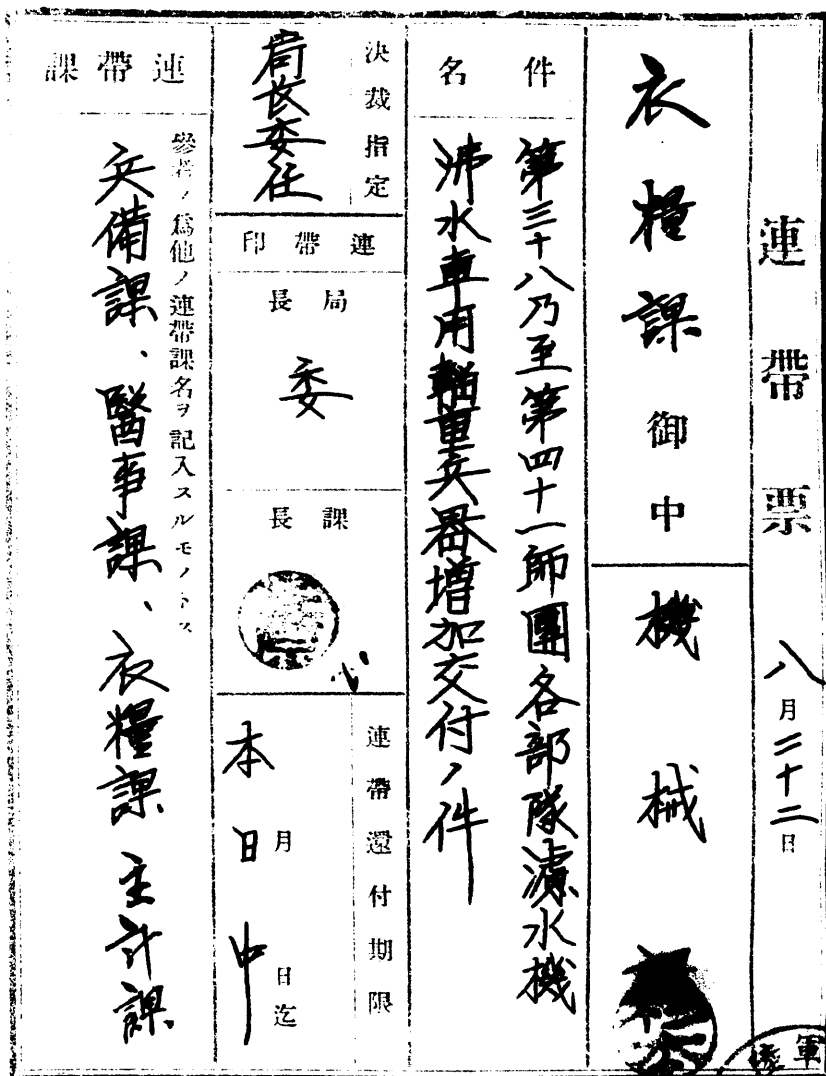 連帶票
八月二十二日
衣糧課御中
機械
件名
第三十八乃至第四十一師團各部隊濾水機
沸水車用輜重兵器增加交付ノ件
決裁指定
局長委任
連帶印
局長
委
課長
連帶還付期限
本日中
月 日迄
連帶課
參考ノ爲他ノ連帶課名ヲ記入スルモノトス
兵備課、醫事課、衣糧課 主計課